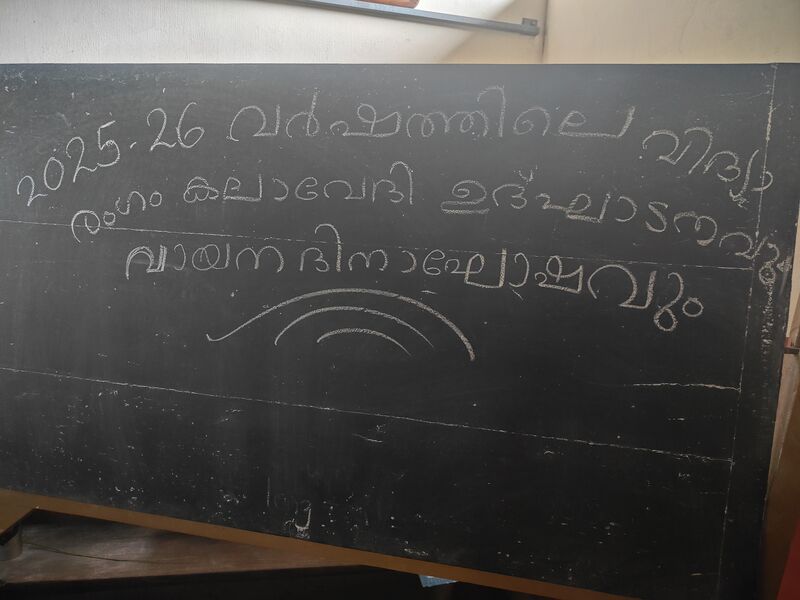 2025-26 വർഷത്തിലെ വിദ്യാ
രംഗം കലാവേദി ഉദ്ഘാടനവും
വായന ദിനാഘോഷവും